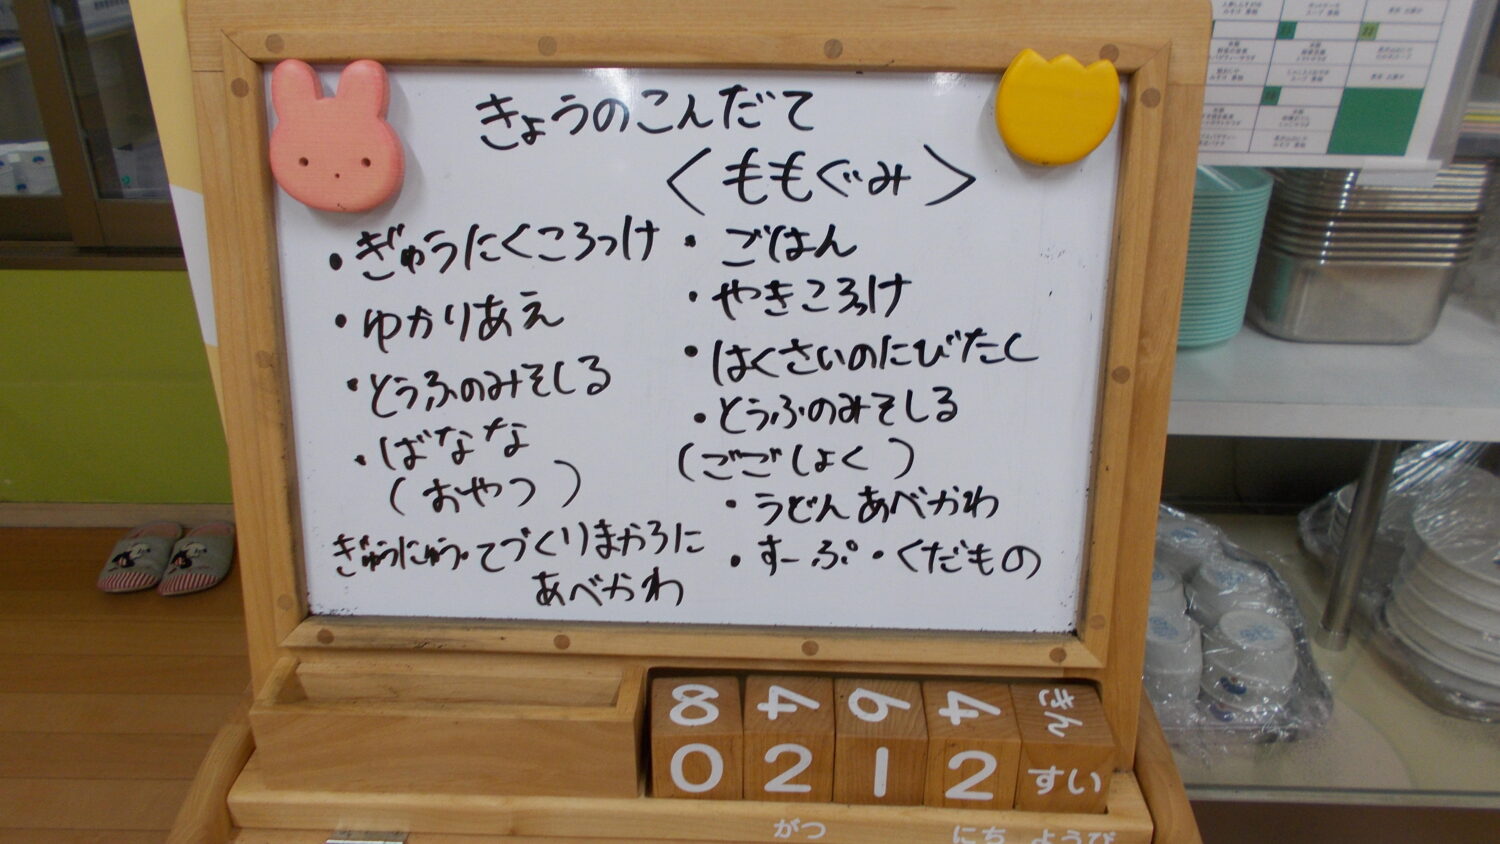 きょうのこんだて
・ぎゅうにくころっけ
・ゆかりあえ
・とうふのみそしる
・ばなな
(おやつ)
ぎゅうにゅう・てづくりまかろに
あべかわ
〈ももぐみ〉
・ごはん
・やきころっけ
・はくさいのにびたし
・とうふのみそしる
(ごごしょく)
・うどんあべかわ
・すーぷ・くだもの
8 4 6 4 きん
0 2 1 2 すい
がつ にち ようび